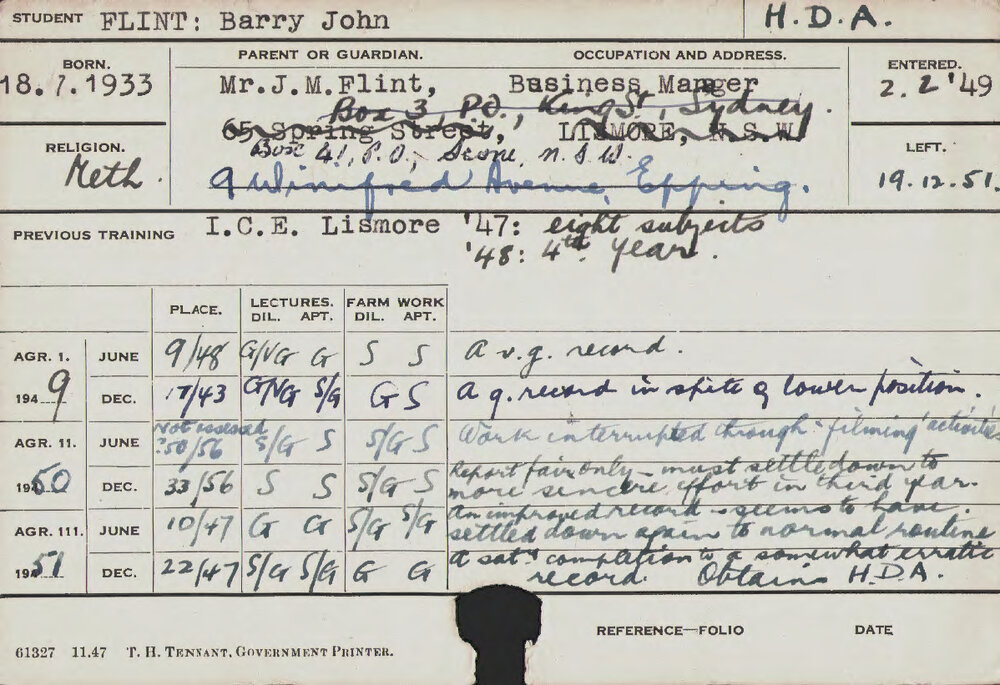 STUDENT FLINT: Barry John H.D.A.
BORN. PARENT OR GUARDIAN. OCCUPATION AND ADDRESS. ENTERED.
18.7.1933 Mr.J.M.Flint, Business Manager 2.2.'49
Box 3, P.O., King St, Sydney.
65 Spring Street, LISMORE, N.S.W.
RELIGION. Box 41, P.O., Scone, N.S.W. LEFT.
Meth. 9 Winifred Avenue, Epping. 19.12.51.
PREVIOUS TRAINING I.C.E. Lismore '47: eight subjects
'48: 4th year.
PLACE. LECTURES. FARM WORK
DIL. APT. DIL. APT.
AGR. 1. JUNE 9/48 G/VG G S S A v.g. record.
1949 DEC. 17/43 G/VG S/G G S A g. record in spite of lower position.
AGR. 11. JUNE Not assessed ?50/56 S/G S S/G S Work interrupted through "filming" activities
1950 DEC. 33/56 S S S/G S Report fair only - must settle down to
more sincere effort in third year.
AGR. 111. JUNE 10/47 G G S/G S/G An improved record - seems to have
settled down again to normal routine
1951 DEC. 22/47 S/G S/G G G A saty completion to a somewhat erratic
record. Obtains H.D.A.
REFERENCE—FOLIO DATE
61327 11.47 T. H. TENNANT, GOVERNMENT PRINTER.